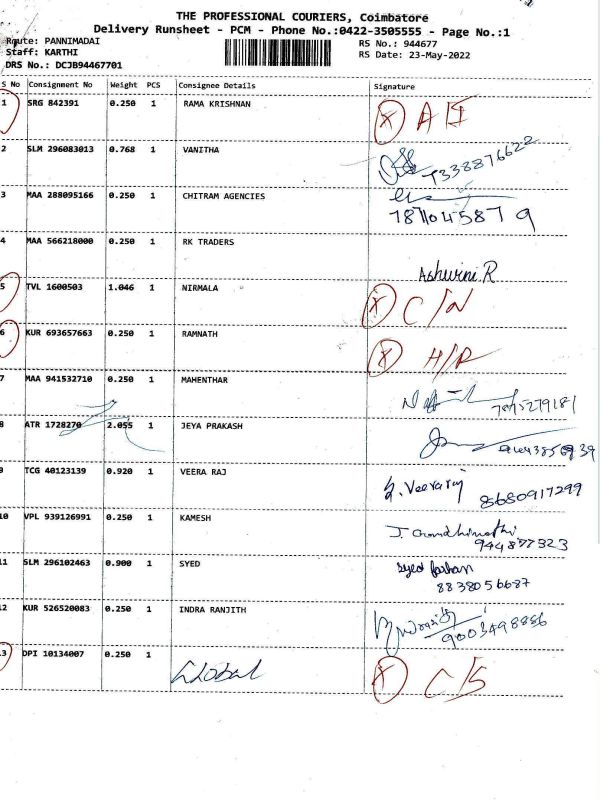 THE PROFESSIONAL COURIERS, Coimbatore
Delivery Runsheet - PCM - Phone No.:0422-3505555 - Page No.:1
Route: PANNIMADAI RS No.: 944677
Staff: KARTHI RS Date: 23-May-2022
DRS No.: DCJB94467701
S No Consignment No Weight PCS Consignee Details Signature
1 SRG 842391 0.250 1 RAMA KRISHNAN X
2 SLM 296083013 0.768 1 VANITHA 7338876622
3 MAA 288095166 0.250 1 CHITRAM AGENCIES
4 MAA 566218000 0.250 1 RK TRADERS Ashwini R
5 TVL 1600503 1.046 1 NIRMALA X C/N
6 KUR 693657663 0.250 1 RAMNATH X
7 MAA 941532710 0.250 1 MAHENTHAR
8 ATR 1728270 2.055 1 JEYA PRAKASH
9 TCG 40123139 0.920 1 VEERA RAJ S. Veeraraj 8680917299
10 VPL 939126991 0.250 1 KAMESH
11 SLM 296102463 0.900 1 SYED Syed farhan 8838056687
12 KUR 526520083 0.250 1 INDRA RANJITH 9003498886
13 DPI 10134007 0.250 1 Global X C/S